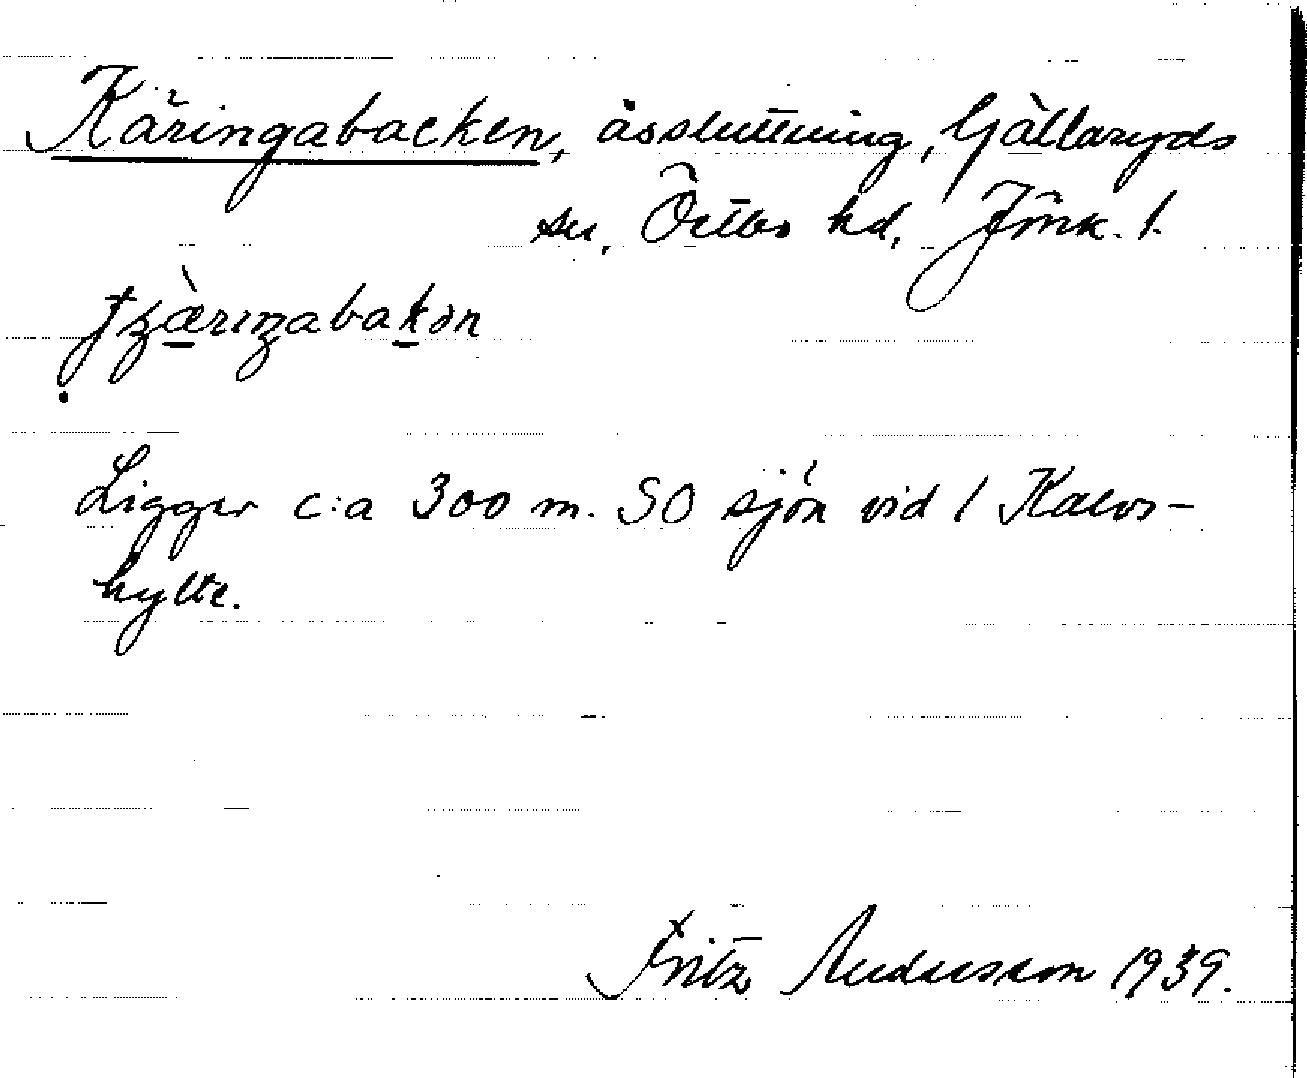 Käringabacken, åssluttning, Gällaryds
sn, Östbo hd, Jönk. l.
Ligger c:a 300 m. SO sjön vid 1 Kalvs-
hylte.
Fritz Andersson 1939.